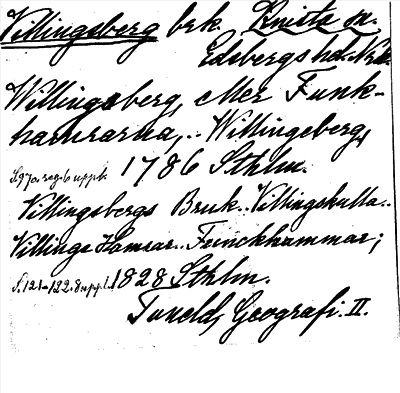 Villingsberg brk. Knista sn.
Edsbergs hd. Nke
Willingsberg, eller Funk-
hamrarna, .. Willingeberg,
S. 970. reg. 6 uppl. 1786 Sthlm.
Villingsbergs Bruk.. Villingshulta..
Villinge Hamrar.. Funckhammar;
S. 121-122. 8 uppl. 1828 Sthlm.
Tuneld, Geografi. II.